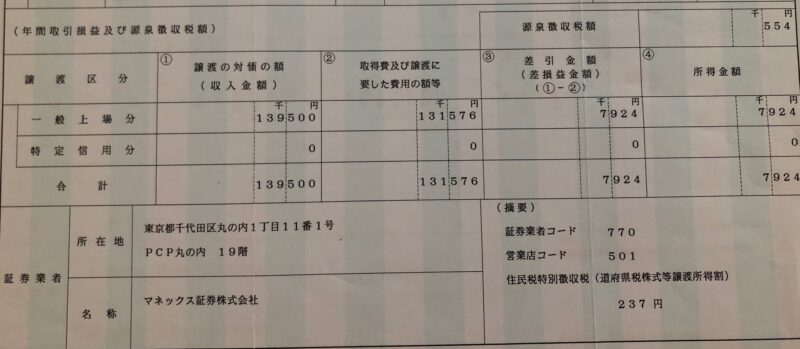 (年間取引損益及び源泉徴収税額)
源泉徴収税額
千 円
554
譲渡区分
①
譲渡の対価の額
(収入金額)
②
取得費及び譲渡に
要した費用の額等
③
差引金額
(差損益金額)
(①-②)
④
所得金額
千 円 千 円 千 円 千 円
一般上場分 139500 131576 7924 7924
特定信用分 0 0 0 0
合計 139500 131576 7924 7924
証券業者
所在地
東京都千代田区丸の内1丁目11番1号
PCP丸の内 19階
名称
マネックス証券株式会社
(摘要)
証券業者コード 770
営業店コード 501
住民税特別徴収税(道府県税株式等譲渡所得割)
237 円